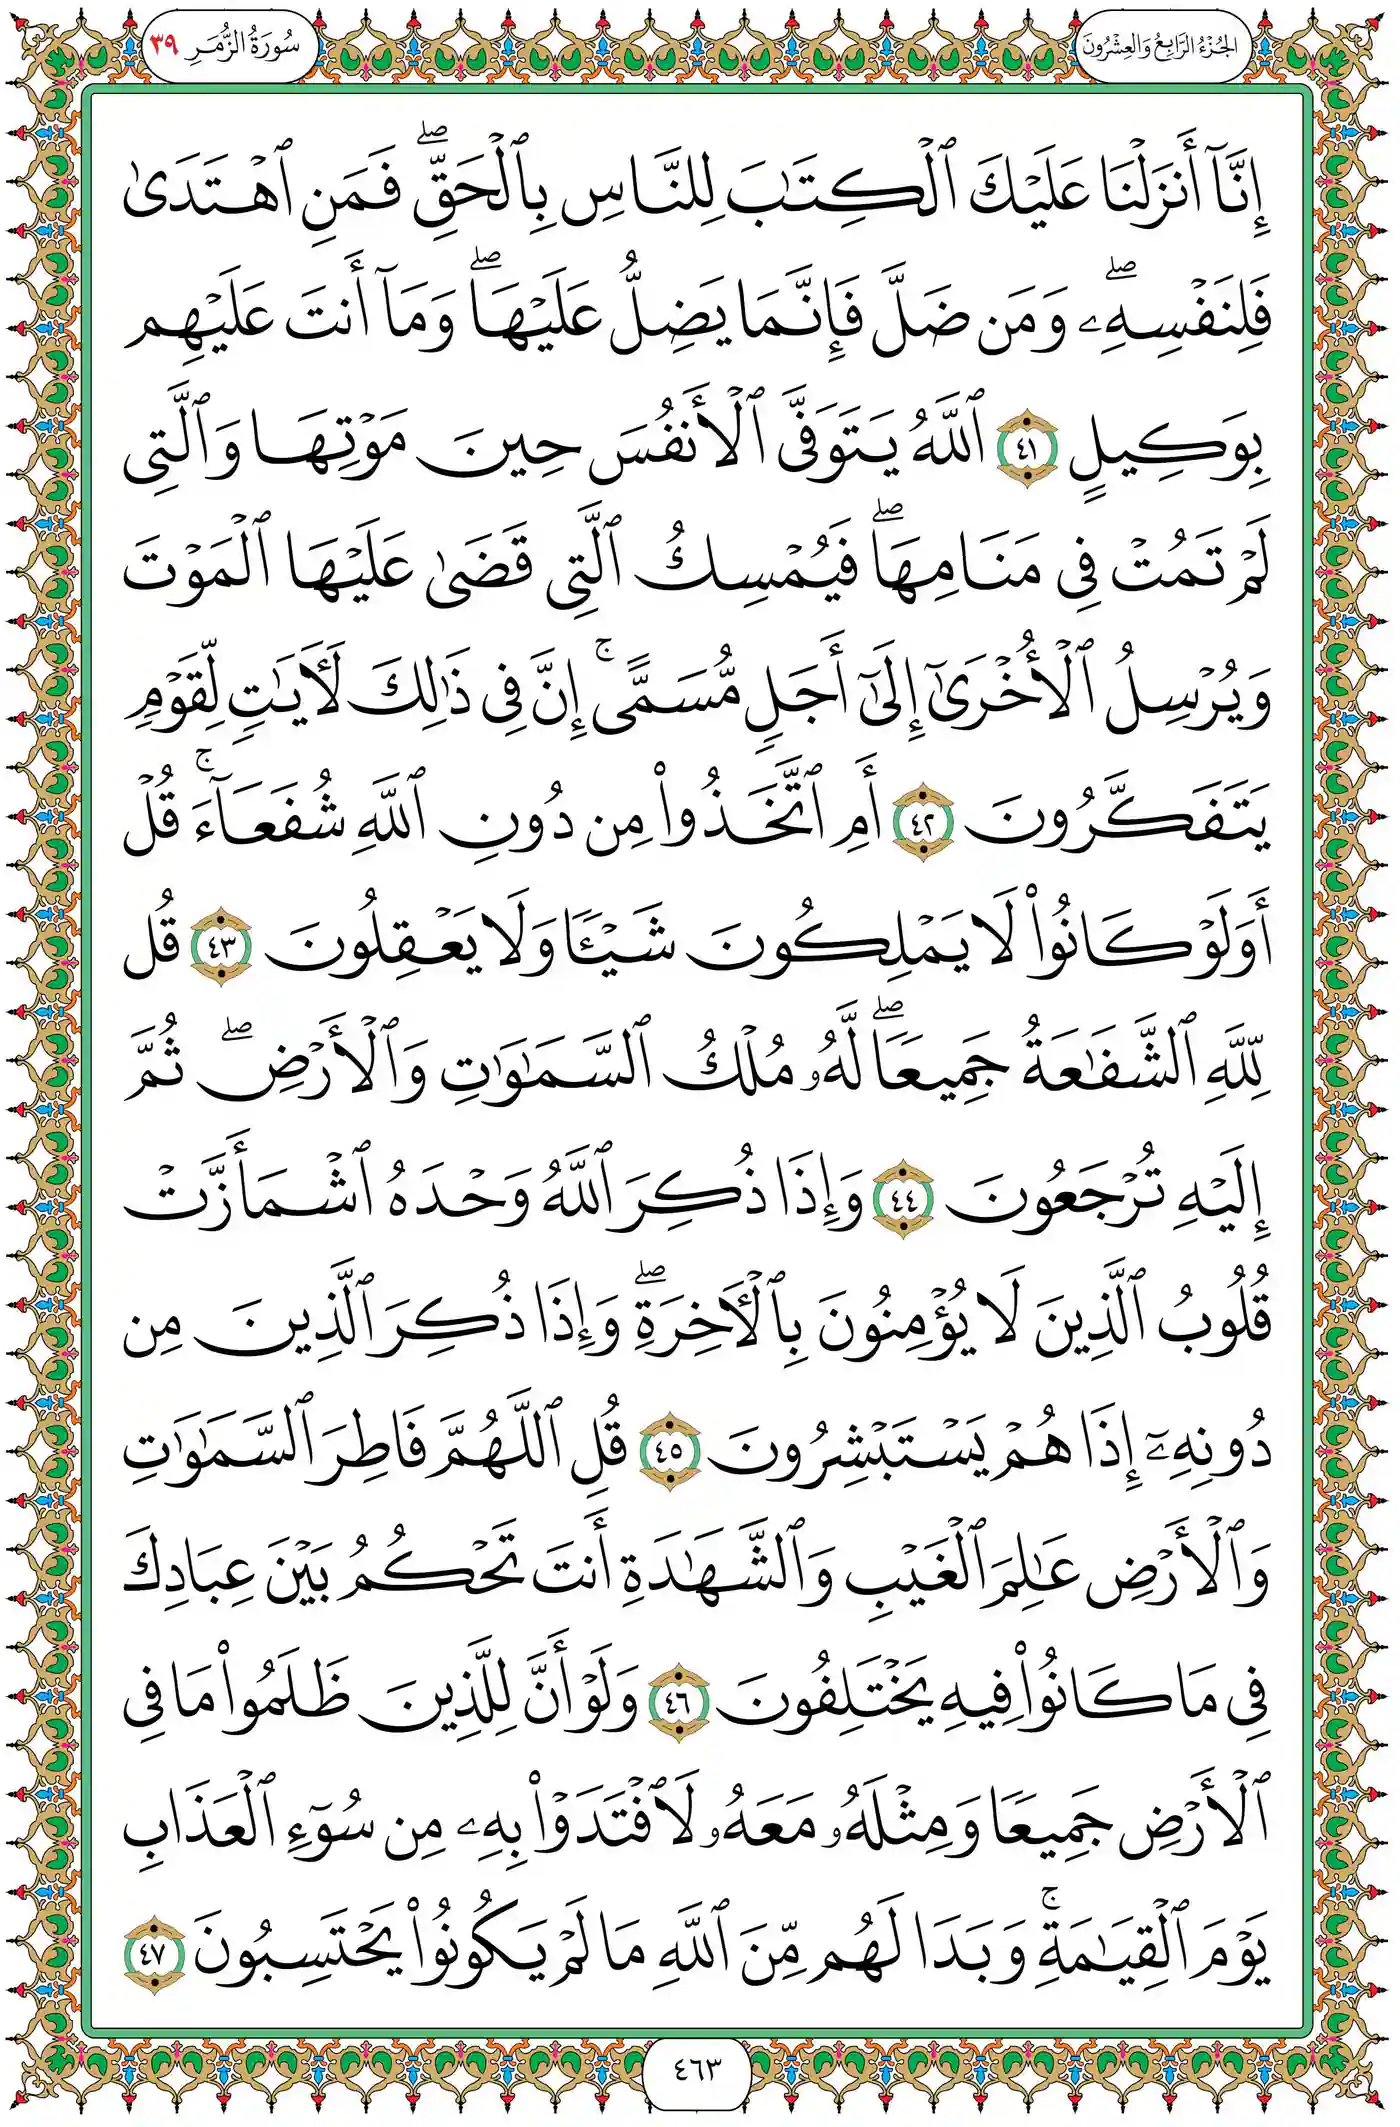 الجُزْءُ الرَّابِعُ وَالعِشْرُونَ
سُورَةُ الزُّمَرِ ٣٩
إِنَّآ أَنزَلْنَا عَلَيْكَ ٱلْكِتَٰبَ لِلنَّاسِ بِٱلْحَقِّ ۖ فَمَنِ ٱهْتَدَىٰ
فَلِنَفْسِهِۦ ۖ وَمَن ضَلَّ فَإِنَّمَا يَضِلُّ عَلَيْهَا ۖ وَمَآ أَنتَ عَلَيْهِم
بِوَكِيلٍ ٤١ ٱللَّهُ يَتَوَفَّى ٱلْأَنفُسَ حِينَ مَوْتِهَا وَٱلَّتِى
لَمْ تَمُتْ فِى مَنَامِهَا ۖ فَيُمْسِكُ ٱلَّتِى قَضَىٰ عَلَيْهَا ٱلْمَوْتَ
وَيُرْسِلُ ٱلْأُخْرَىٰٓ إِلَىٰٓ أَجَلٍ مُّسَمًّى ۚ إِنَّ فِى ذَٰلِكَ لَءَايَٰتٍ لِّقَوْمٍ
يَتَفَكَّرُونَ ٤٢ أَمِ ٱتَّخَذُوا۟ مِن دُونِ ٱللَّهِ شُفَعَآءَ ۚ قُلْ
أَوَلَوْ كَانُوا۟ لَا يَمْلِكُونَ شَيْـًٔا وَلَا يَعْقِلُونَ ٤٣ قُل
لِّلَّهِ ٱلشَّفَٰعَةُ جَمِيعًا ۖ لَّهُۥ مُلْكُ ٱلسَّمَٰوَٰتِ وَٱلْأَرْضِ ۖ ثُمَّ
إِلَيْهِ تُرْجَعُونَ ٤٤ وَإِذَا ذُكِرَ ٱللَّهُ وَحْدَهُ ٱشْمَأَزَّتْ
قُلُوبُ ٱلَّذِينَ لَا يُؤْمِنُونَ بِٱلْءَاخِرَةِ ۖ وَإِذَا ذُكِرَ ٱلَّذِينَ مِن
دُونِهِۦٓ إِذَا هُمْ يَسْتَبْشِرُونَ ٤٥ قُلِ ٱللَّهُمَّ فَاطِرَ ٱلسَّمَٰوَٰتِ
وَٱلْأَرْضِ عَٰلِمَ ٱلْغَيْبِ وَٱلشَّهَٰدَةِ أَنتَ تَحْكُمُ بَيْنَ عِبَادِكَ
فِى مَا كَانُوا۟ فِيهِ يَخْتَلِفُونَ ٤٦ وَلَوْ أَنَّ لِلَّذِينَ ظَلَمُوا۟ مَا فِى
ٱلْأَرْضِ جَمِيعًا وَمِثْلَهُۥ مَعَهُۥ لَٱفْتَدَوْا۟ بِهِۦ مِن سُوٓءِ ٱلْعَذَابِ
يَوْمَ ٱلْقِيَٰمَةِ ۚ وَبَدَا لَهُم مِّنَ ٱللَّهِ مَا لَمْ يَكُونُوا۟ يَحْتَسِبُونَ ٤٧
٤٦٣